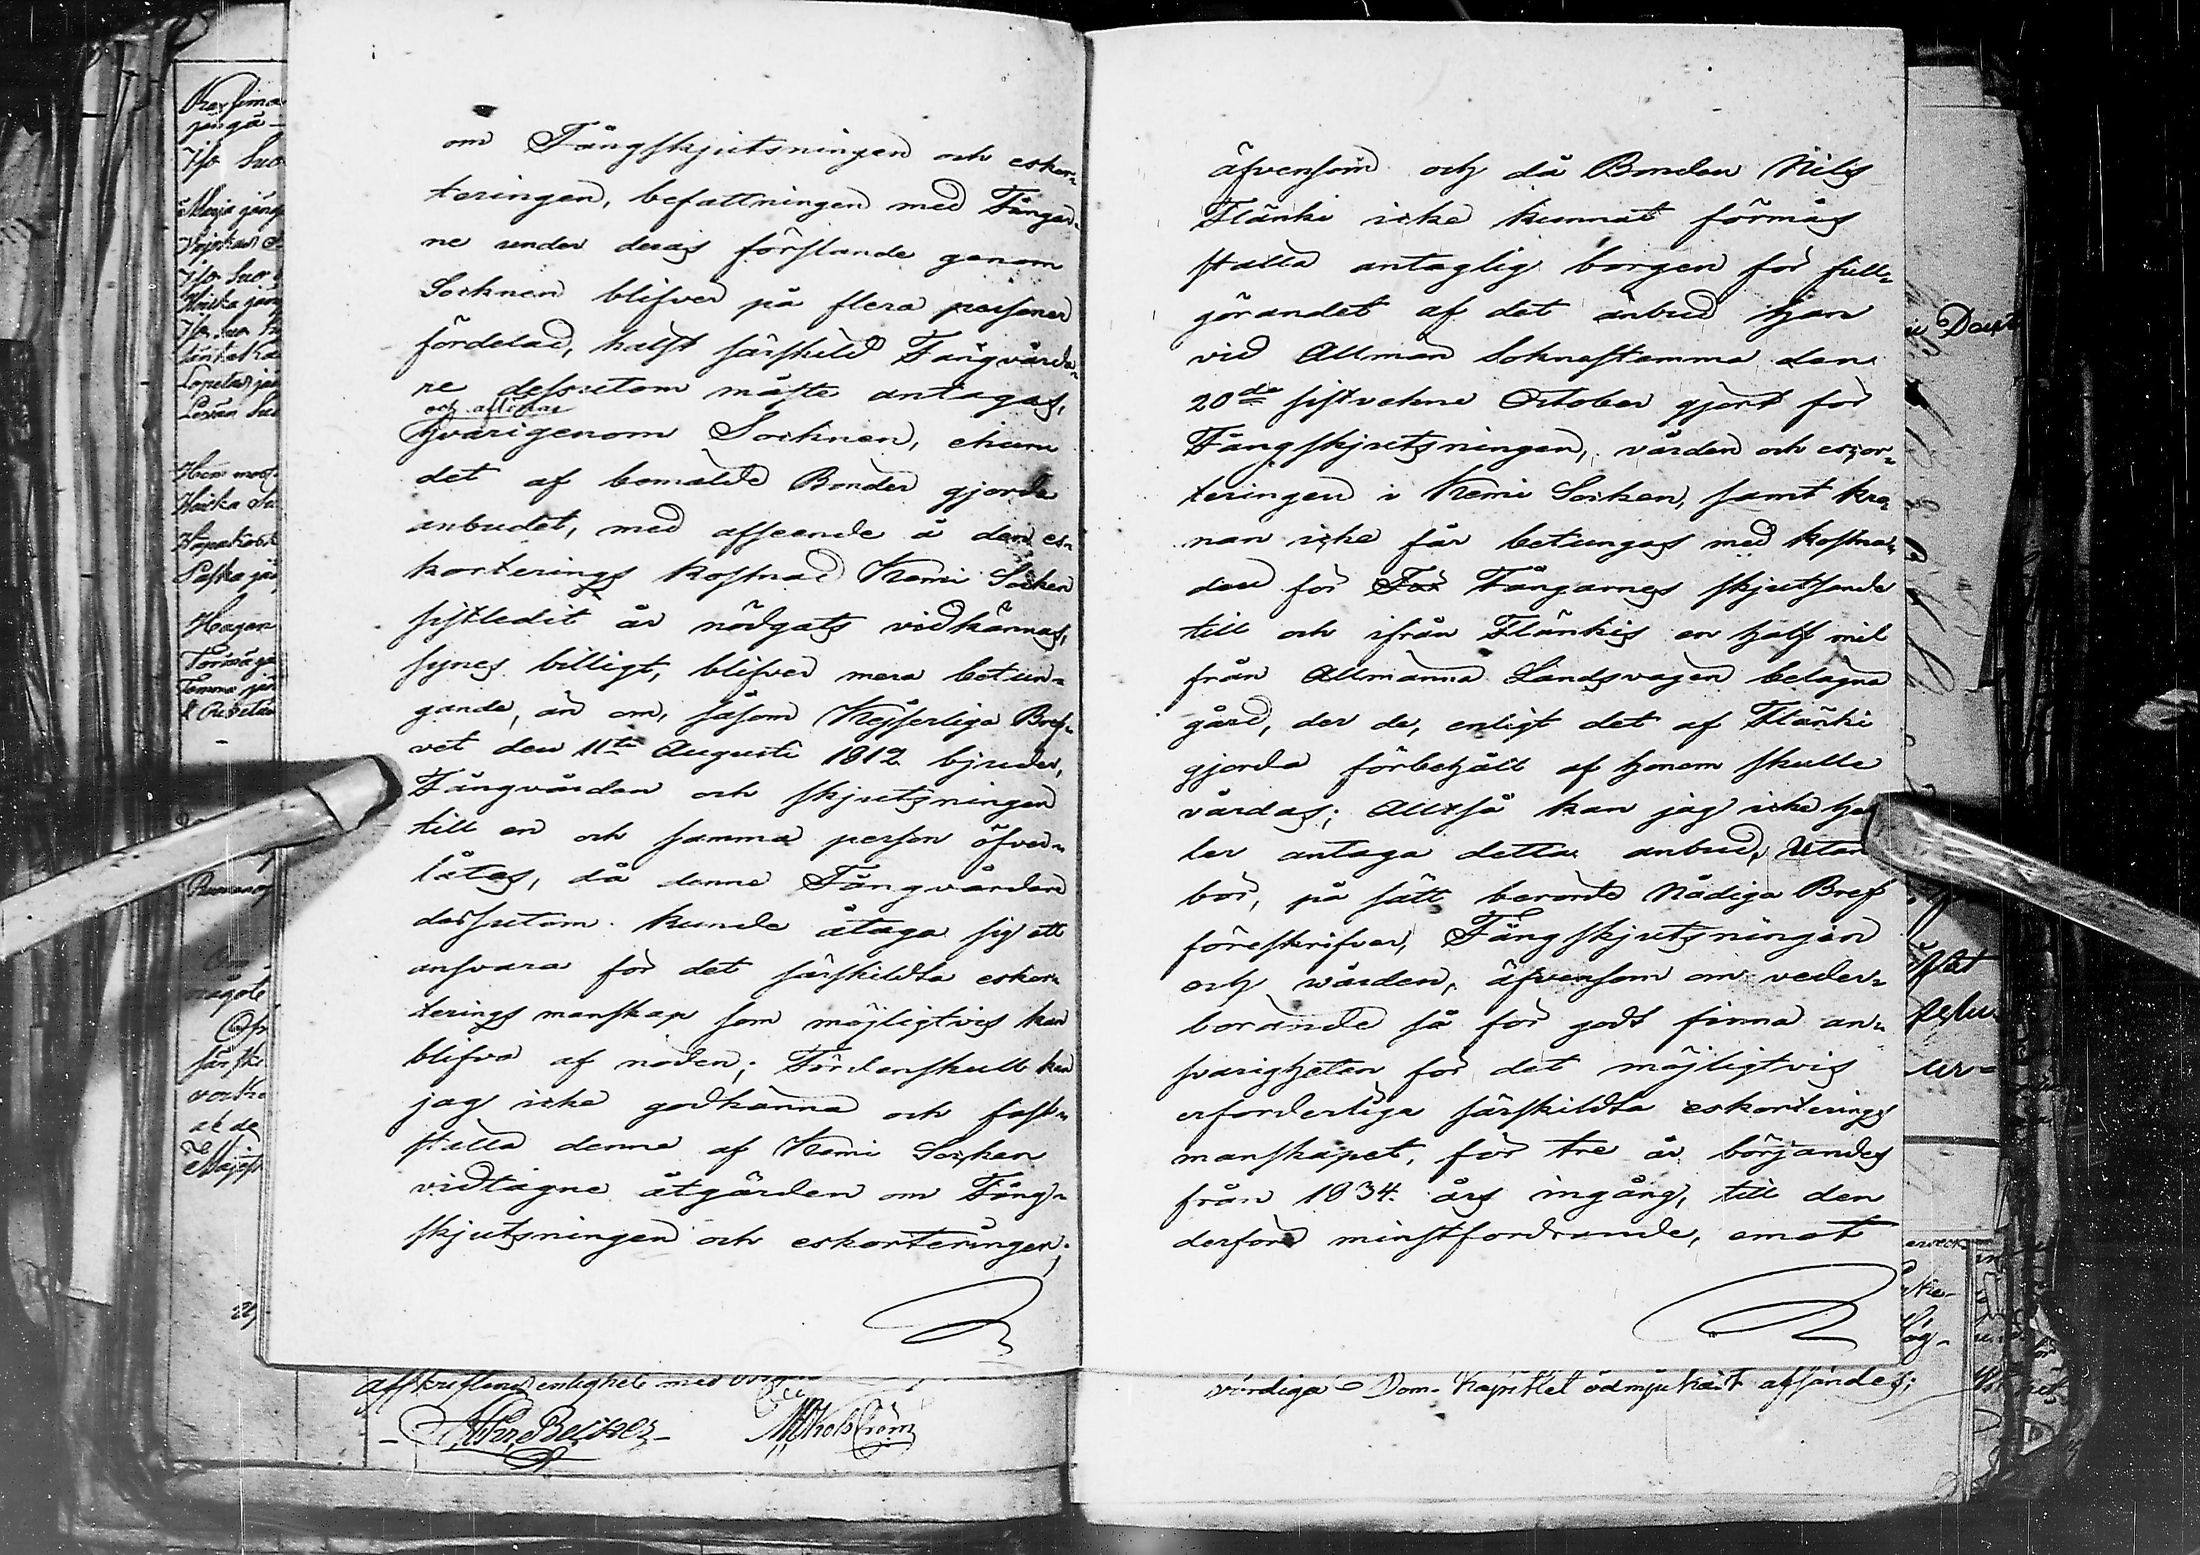 om Fångskjutsningen och eskor-
teringen, befattningen med Fångar-
ne under deras förslande genom
Socknen blifver på flera personer
fördelad, hälst särskild Fångvårda-
re dessutom måste antagas,
och aflönas
hvarigenom Socknen, ehuru
det af bemälde Bonder gjorde
anbudet, med afseende å den es-
korterings kostnad Kemi Socken
sistledit år nödgats vidkännas,
synes billigt, blifver mera betun-
gande, än om, såsom Kejserliga Bref-
vet den 11te Augusti 1812 bjuder,
Fångvården och skjutsningen
till en och samma person öfver-
låtes, då denne Fångvårdare
dessutom kunde åtaga sig att
ansvara för det särskildta eskor-
terings manskap som möjligtvis kan
blifva af nöden; Fördenskull kan
jag icke godkänna och fast-
ställa denne af Kemi Socken
vidtagne åtgärden om Fång-
skjutsningen och eskorteringen;
äfvensom och då Bonden Nils
Flänki icke kunnat förmås
ställa antaglig borgen för full-
görandet af det anbud han
vid Allmän Soknestämma den
20de sistvekne October gjort för
Fångskjutsningen, vården och escor-
teringen i Kemi Socken, samt kro-
nan icke får betungas med kostna-
den för För Fångarnes skjutsande
till och ifrån Flänkis en half mil
från Allmänna Landsvägen belägna
gård, der de, enligt det af Flänki
gjorda förbehåll af honom skulle
vårdas; Alltså kan jag icke hel
ler antaga detta anbud, Utan
bör, på sätt berörde Nådiga Bref
föreskrifver, Fångskjutsningen
och vården, äfvensom om veder-
börande så för godt finna an-
svarigheten för det möjligtvis
erforderliga särskildta eskorterings
manskapet, för tre år börjandes
från 1834 års ingång, till den
derföre minstfordrande, emot
afskriftens enlighet med
vördiga Dom-Kapitlet ödmjukast afsändes;